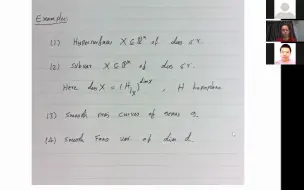 Examples:
(1) Hypersurfaces X ⊆ ℙⁿ of deg ≤ r.
(2) Subvar X ⊆ ℙⁿ of deg ≤ r.
Here deg X = (H|_X)^{dim X}, H hyperplane
(3) Smooth proj curves of genus g.
(4) Smooth Fano var. of dim d.